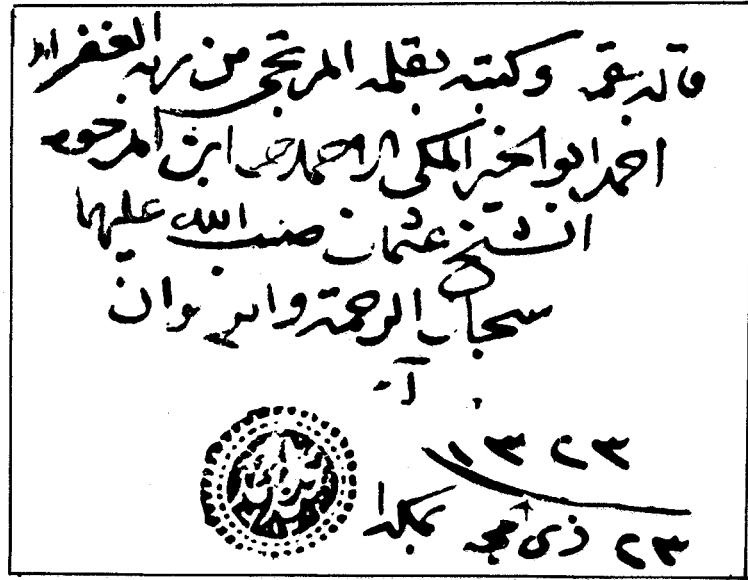 قاله بفمه وكتبه بقلمه المرتجى من ربه الغفر
احمد ابو الخير المكي الاحمدي ابن المرحوم
الشيخ عثمان صبت الله عليهما
سجال الرحمة والرضوان
١٣٢٣
٢٣ ذي حجه بمكة